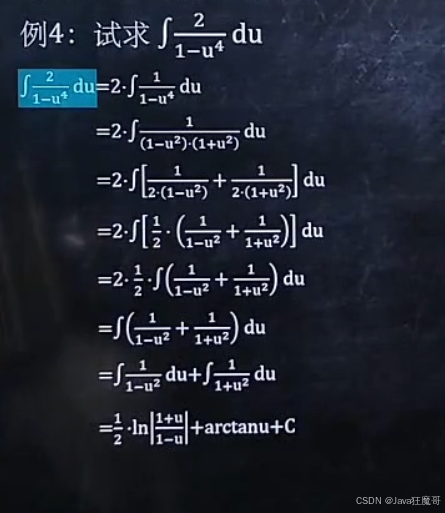 例4：试求∫2/(1−u⁴) du
∫2/(1−u⁴) du=2·∫1/(1−u⁴) du
=2·∫1/((1−u²)·(1+u²)) du
=2·∫[1/(2·(1−u²)) + 1/(2·(1+u²))] du
=2·∫[1/2·(1/(1−u²) + 1/(1+u²))] du
=2·1/2·∫(1/(1−u²) + 1/(1+u²)) du
=∫(1/(1−u²) + 1/(1+u²)) du
=∫1/(1−u²) du+∫1/(1+u²) du
=1/2·ln|(1+u)/(1−u)|+arctanu+C
CSDN @Java狂魔哥